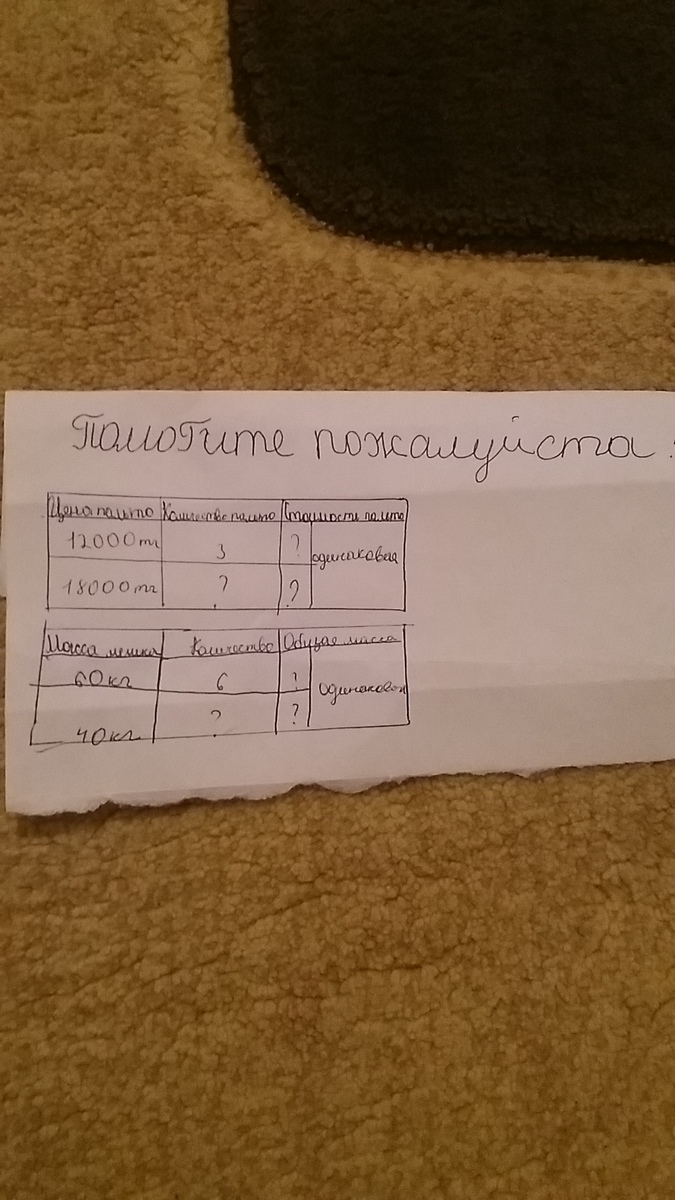 Помогите пожалуйста
Цена пальто Количество пальто Стоимость пальто
12000тг 3 ? одинаковая
18000тг ? ?
Масса мешка Количество Общая масса
60кг 6 ? одинаковая
40кг ? ?